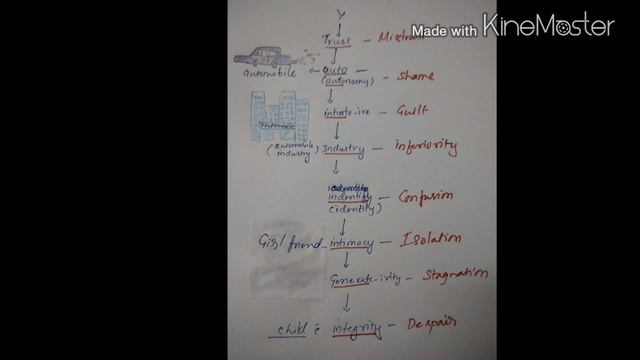 Made with KineMaster
Trust - Mistrust
automobile ← auto - Shame
(autonomy)
intiate-ive - Guilt
Yautomobile
(automobile industry) Industry - inferiority
indentity - Confusion
(identity)
Girl friend - intimacy - Isolation
Generate-ivity - Stagnation
child c̄ integrity - Despair